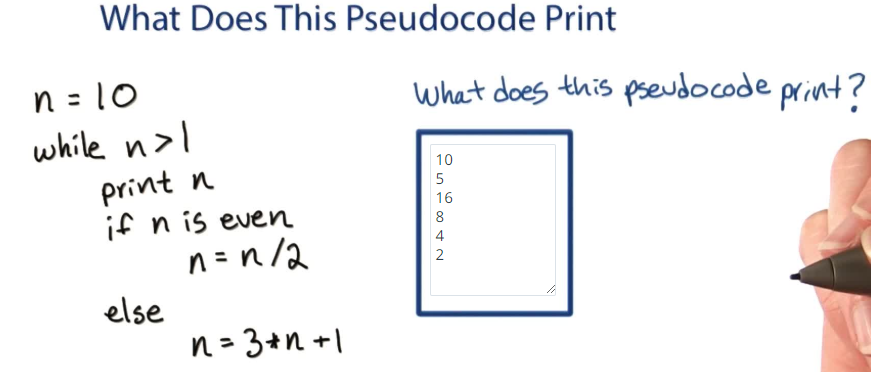 What Does This Pseudocode Print
n = 10
while n > 1
print n
if n is even
n = n / 2
else
n = 3 * n + 1
What does this pseudocode print?
10
5
16
8
4
2